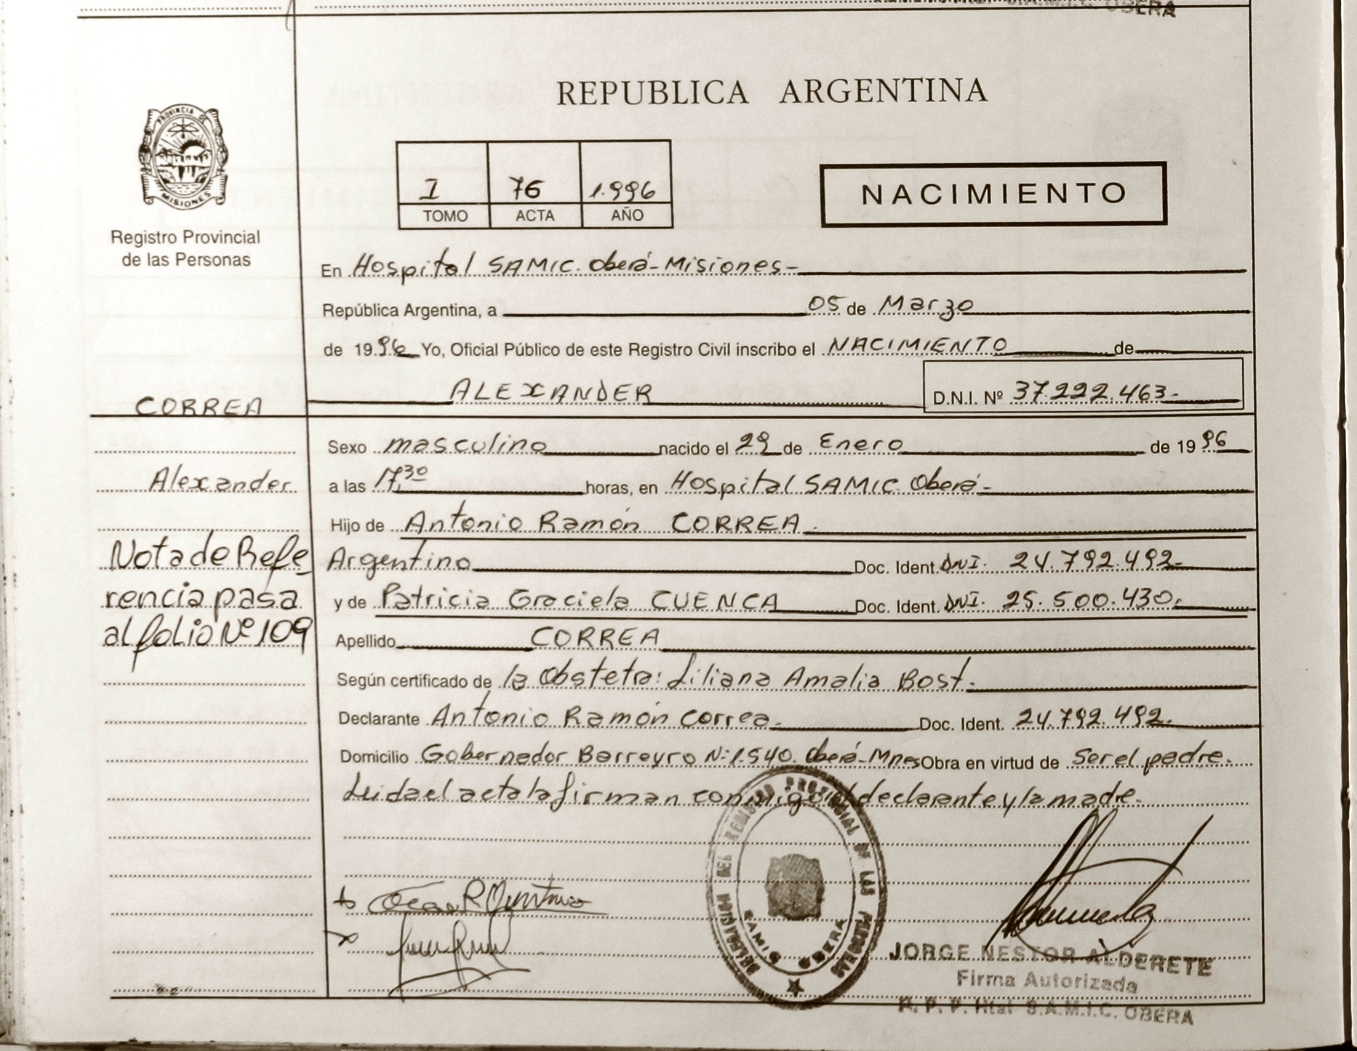 OBERA
REPUBLICA ARGENTINA
PROVINCIA DE
MISIONES
Registro Provincial
de las Personas
I 76 1.996
TOMO ACTA AÑO
NACIMIENTO
En Hospital SAMIC. Oberá-Misiones-
República Argentina, a 05 de Marzo
de 1996 Yo, Oficial Público de este Registro Civil inscribo el NACIMIENTO de
ALEXANDER D.N.I. Nº 37.222.463-
CORREA
Sexo masculino nacido el 29 de Enero de 1996
Alexander
a las 17,30 horas, en Hospital SAMIC Oberá-
Hijo de Antonio Ramón CORREA.
Nota de Refe
Argentino Doc. Ident. DNI. 24.792.492-
rencia pasa
y de Patricia Graciela CUENCA Doc. Ident. DNI. 25.500.430.
al folio Nº 109
Apellido CORREA
Según certificado de la Obstetra: Liliana Amalia Bost.
Declarante Antonio Ramón Correa. Doc. Ident. 24.792.492.
Domicilio Gobernador Barreyro Nº 1.540. Oberá-Mnes Obra en virtud de Ser el padre.
Leida el acta la firman conmigo el declarante y la madre.
DELEGACION DEL REGISTRO PROVINCIAL DE LAS PERSONAS
SAMIC OBERA
JORGE NESTOR ALDERETE
Firma Autorizada
R. P. P. Htal S.A.M.I.C. OBERA